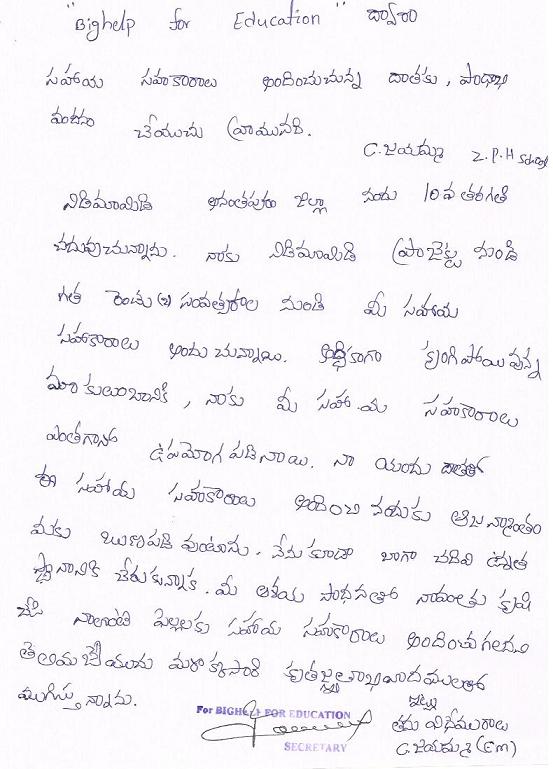 "Bighelp for Education" ద్వారా
సహాయ సహకారాలు అందించుచున్న దాతకు, పాదాభి
వందనం చేయుచు వ్రాయునది.
C. జయమ్మ Z.P.H School
నిడిమామిడి అనంతపురం జిల్లా నందు 10వ తరగతి
చదువుచున్నాను. నాకు నిడిమామిడి ప్రాజెక్టు నుండి
గత రెండు (2) సంవత్సరాల నుంచి మీ సహాయ
సహాకారాలు అందుచున్నాయి. ఆర్థికంగా కృంగిపోయివున్న
మా కుటుంబానికి, నాకు మీ సహాయ సహకారాలు
ఎంతగానో ఉపయోగపడినాయి. నా యందు దాతతో
ఈ సహాయ సహకారాలు అందించినందుకు ఆజన్మాంతం
మీకు ఋణపడి వుంటాను. నేను కూడా బాగా చదివి ఉన్నత
స్థానానికి చేరుకున్నాక. మీ ఆశయ సాధనతో నావంతు కృషి
చేసి నాలాంటి పిల్లలకు సహాయ సహకారాలు అందించగలనని
తెలియజేయుచు మరొక్కసారి కృతజ్ఞతాభివాదములతో
ముగిస్తున్నాను.
ఇట్లు
తమ విధేయురాలు
C. జయమ్మ (EM)
For BIGHELP FOR EDUCATION
SECRETARY